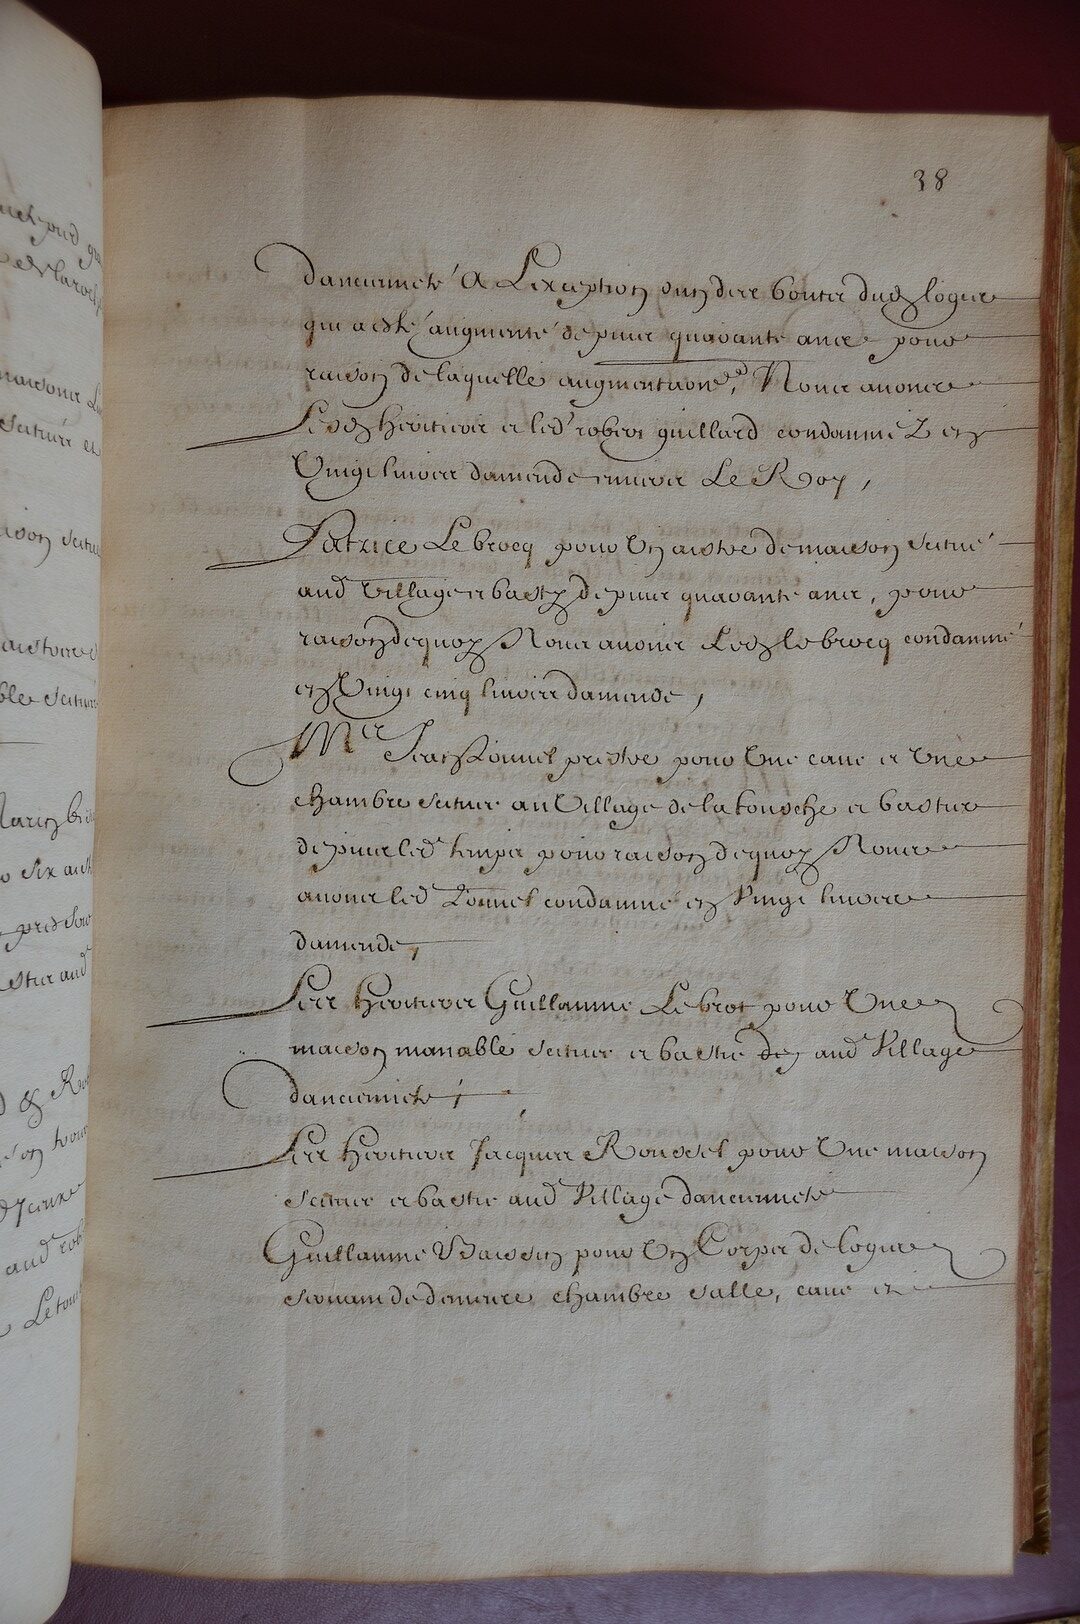 38
d'ancienneté A L'exception d'un des bouts dud logis
qui a esté augmenté depuis quarante ans pour
raison de laquelle augmentaon, Nous avons
Lesd heritiers et led robert guillard condamnéz en
Vingt livres damende envers Le Roy,
Patrice Lebrocq pour Un aistre de maison scitué
aud Village et basty depuis quarante ans, pour
raison dequoy Nous avons Led lebrocq condamné
en Vingt cinq livres damende,
Mre Jean pour Une cave et Une
chambre scituée au Village de la tousche et bastie
depuis led temps pour raison dequoy Nous
avons led condamné en Vingt livres
damende,
Les heritiers Guillaume Lebrot pour Une
maison manable scituée et bastie aud Village
dancienneté,
Les heritiers Jacques Roussel pour Une maison
scituée et bastie aud Village dancienneté
Guillaume pour Un Corps de logis
servant de demeure chambre salle, cave et